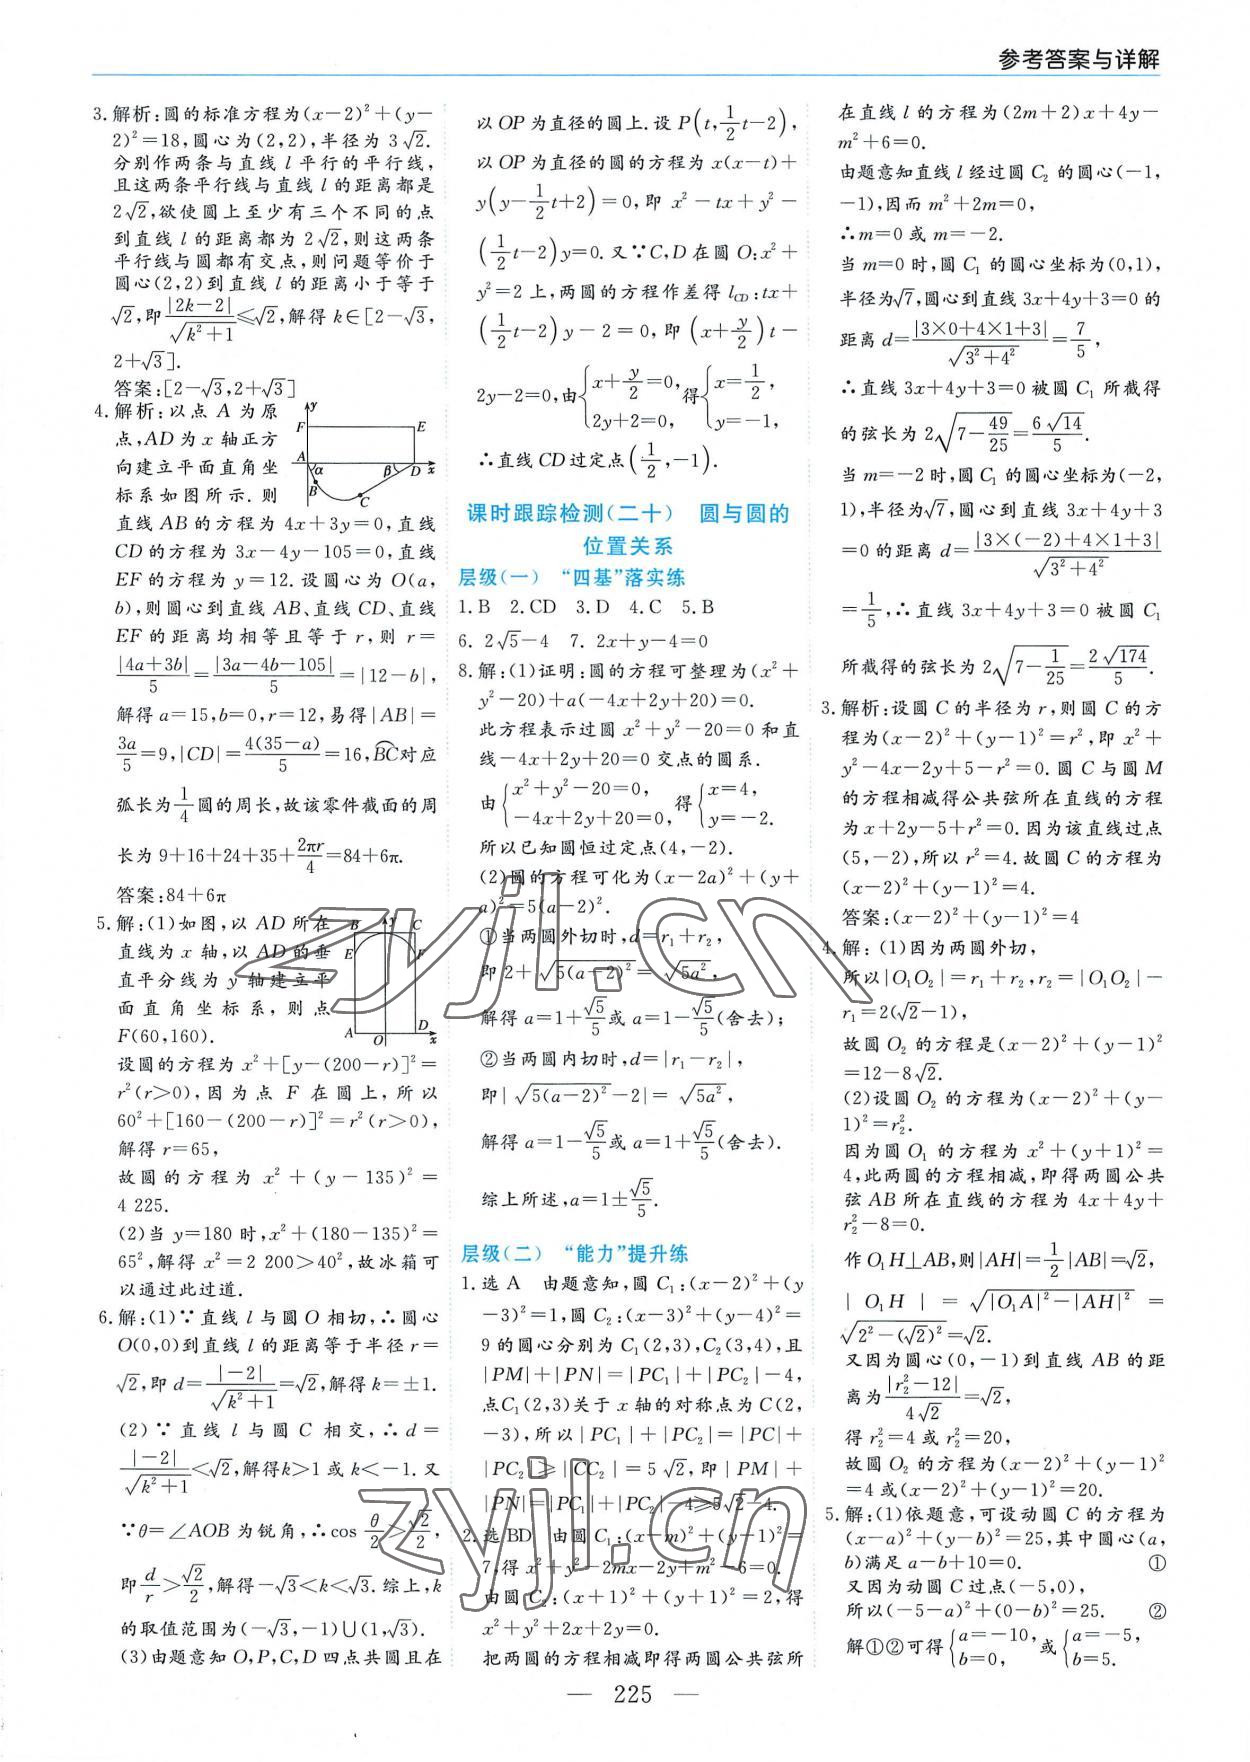 参考答案与详解
3.解析:圆的标准方程为(x-2)²+(y-
2)²=18,圆心为(2,2),半径为3√2.
分别作两条与直线l平行的平行线,
且这两条平行线与直线l的距离都是
2√2,欲使圆上至少有三个不同的点
到直线l的距离都为2√2,则这两条
平行线与圆都有交点,则问题等价于
圆心(2,2)到直线l的距离小于等于
√2,即|2k-2|/√(k²+1)≤√2,解得k∈[2-√3,
2+√3].
答案:[2-√3,2+√3]
4.解析:以点A为原
点,AD为x轴正方
向建立平面直角坐
标系如图所示.则
y
F E
A α β D x
B C
直线AB的方程为4x+3y=0,直线
CD的方程为3x-4y-105=0,直线
EF的方程为y=12.设圆心为O(a,
b),则圆心到直线AB、直线CD、直线
EF的距离均相等且等于r,则r=
|4a+3b|/5=|3a-4b-105|/5=|12-b|,
解得a=15,b=0,r=12,易得|AB|=
3a/5=9,|CD|=4(35-a)/5=16,BC对应
弧长为1/4圆的周长,故该零件截面的周
长为9+16+24+35+2πr/4=84+6π.
答案:84+6π
5.解:(1)如图,以AD所在
直线为x轴,以AD的垂
直平分线为y轴建立平
面直角坐标系,则点
F(60,160).
B y C
E F
A O D x
设圆的方程为x²+[y-(200-r)]²=
r²(r>0),因为点F在圆上,所以
60²+[160-(200-r)]²=r²(r>0),
解得r=65,
故圆的方程为x²+(y-135)²=
4 225.
(2)当y=180时,x²+(180-135)²=
65²,解得x²=2 200>40²,故冰箱可
以通过此过道.
6.解:(1)∵直线l与圆O相切,∴圆心
O(0,0)到直线l的距离等于半径r=
√2,即d=|-2|/√(k²+1)=√2,解得k=±1.
(2)∵直线l与圆C相交,∴d=
|-2|/√(k²+1)<√2,解得k>1或k<-1.又
∵θ=∠AOB为锐角,∴cos θ/2>√2/2,
即d/r>√2/2,解得-√3<k<√3.综上,k
的取值范围为(-√3,-1)∪(1,√3).
(3)由题意知O,P,C,D四点共圆且在
以OP为直径的圆上.设P(t,1/2t-2),
以OP为直径的圆的方程为x(x-t)+
y(y-1/2t+2)=0,即x²-tx+y²-
(1/2t-2)y=0.又∵C,D在圆O:x²+
y²=2上,两圆的方程作差得l_CD:tx+
(1/2t-2)y-2=0,即(x+y/2)t-
2y-2=0,由{x+y/2=0, 2y+2=0,得{x=1/2, y=-1,
∴直线CD过定点(1/2,-1).
课时跟踪检测(二十) 圆与圆的
位置关系
层级(一) “四基”落实练
1.B 2.CD 3.D 4.C 5.B
6.2√5-4 7.2x+y-4=0
8.解:(1)证明:圆的方程可整理为(x²+
y²-20)+a(-4x+2y+20)=0.
此方程表示过圆x²+y²-20=0和直
线-4x+2y+20=0交点的圆系.
由{x²+y²-20=0, -4x+2y+20=0,得{x=4, y=-2.
所以已知圆恒过定点(4,-2).
(2)圆的方程可化为(x-2a)²+(y+
a)²=5(a-2)².
①当两圆外切时,d=r₁+r₂,
即2+√(5(a-2)²)=√(5a²),
解得a=1+√5/5或a=1-√5/5(舍去);
②当两圆内切时,d=|r₁-r₂|,
即|√(5(a-2)²)-2|=√(5a²),
解得a=1-√5/5或a=1+√5/5(舍去).
综上所述,a=1±√5/5.
层级(二) “能力”提升练
1.选A 由题意知,圆C₁:(x-2)²+(y
-3)²=1,圆C₂:(x-3)²+(y-4)²=
9的圆心分别为C₁(2,3),C₂(3,4),且
|PM|+|PN|=|PC₁|+|PC₂|-4,
点C₁(2,3)关于x轴的对称点为C(2,
-3),所以|PC₁|+|PC₂|=|PC|+
|PC₂|≥|CC₂|=5√2,即|PM|+
|PN|=|PC₁|+|PC₂|-4≥5√2-4.
2.选BD 由圆C₁:(x-m)²+(y-1)²=
7,得x²+y²-2mx-2y+m²-6=0.
由圆C₂:(x+1)²+(y+1)²=2,得
x²+y²+2x+2y=0.
把两圆的方程相减即得两圆公共弦所
在直线l的方程为(2m+2)x+4y-
m²+6=0.
由题意知直线l经过圆C₂的圆心(-1,
-1),因而m²+2m=0,
∴m=0或m=-2.
当m=0时,圆C₁的圆心坐标为(0,1),
半径为√7,圆心到直线3x+4y+3=0的
距离d=|3×0+4×1+3|/√(3²+4²)=7/5,
∴直线3x+4y+3=0被圆C₁所截得
的弦长为2√(7-49/25)=6√14/5.
当m=-2时,圆C₁的圆心坐标为(-2,
1),半径为√7,圆心到直线3x+4y+3
=0的距离d=|3×(-2)+4×1+3|/√(3²+4²)
=1/5,∴直线3x+4y+3=0被圆C₁
所截得的弦长为2√(7-1/25)=2√174/5.
3.解析:设圆C的半径为r,则圆C的方
程为(x-2)²+(y-1)²=r²,即x²+
y²-4x-2y+5-r²=0.圆C与圆M
的方程相减得公共弦所在直线的方程
为x+2y-5+r²=0.因为该直线过点
(5,-2),所以r²=4.故圆C的方程为
(x-2)²+(y-1)²=4.
答案:(x-2)²+(y-1)²=4
4.解:(1)因为两圆外切,
所以|O₁O₂|=r₁+r₂,r₂=|O₁O₂|-
r₁=2(√2-1),
故圆O₂的方程是(x-2)²+(y-1)²
=12-8√2.
(2)设圆O₂的方程为(x-2)²+(y-
1)²=r₂².
因为圆O₁的方程为x²+(y+1)²=
4,此两圆的方程相减,即得两圆公共
弦AB所在直线的方程为4x+4y+
r₂²-8=0.
作O₁H⊥AB,则|AH|=1/2|AB|=√2,
|O₁H|=√(|O₁A|²-|AH|²)=
√(2²-(√2)²)=√2.
又因为圆心(0,-1)到直线AB的距
离为|r₂²-12|/4√2=√2,
得r₂²=4或r₂²=20,
故圆O₂的方程为(x-2)²+(y-1)²
=4或(x-2)²+(y-1)²=20.
5.解:(1)依题意,可设动圆C的方程为
(x-a)²+(y-b)²=25,其中圆心(a,
b)满足a-b+10=0. ①
又因为动圆C过点(-5,0),
所以(-5-a)²+(0-b)²=25. ②
解①②可得{a=-10, b=0,或{a=-5, b=5.
— 225 —
zyjl.cn
zyjl.cn